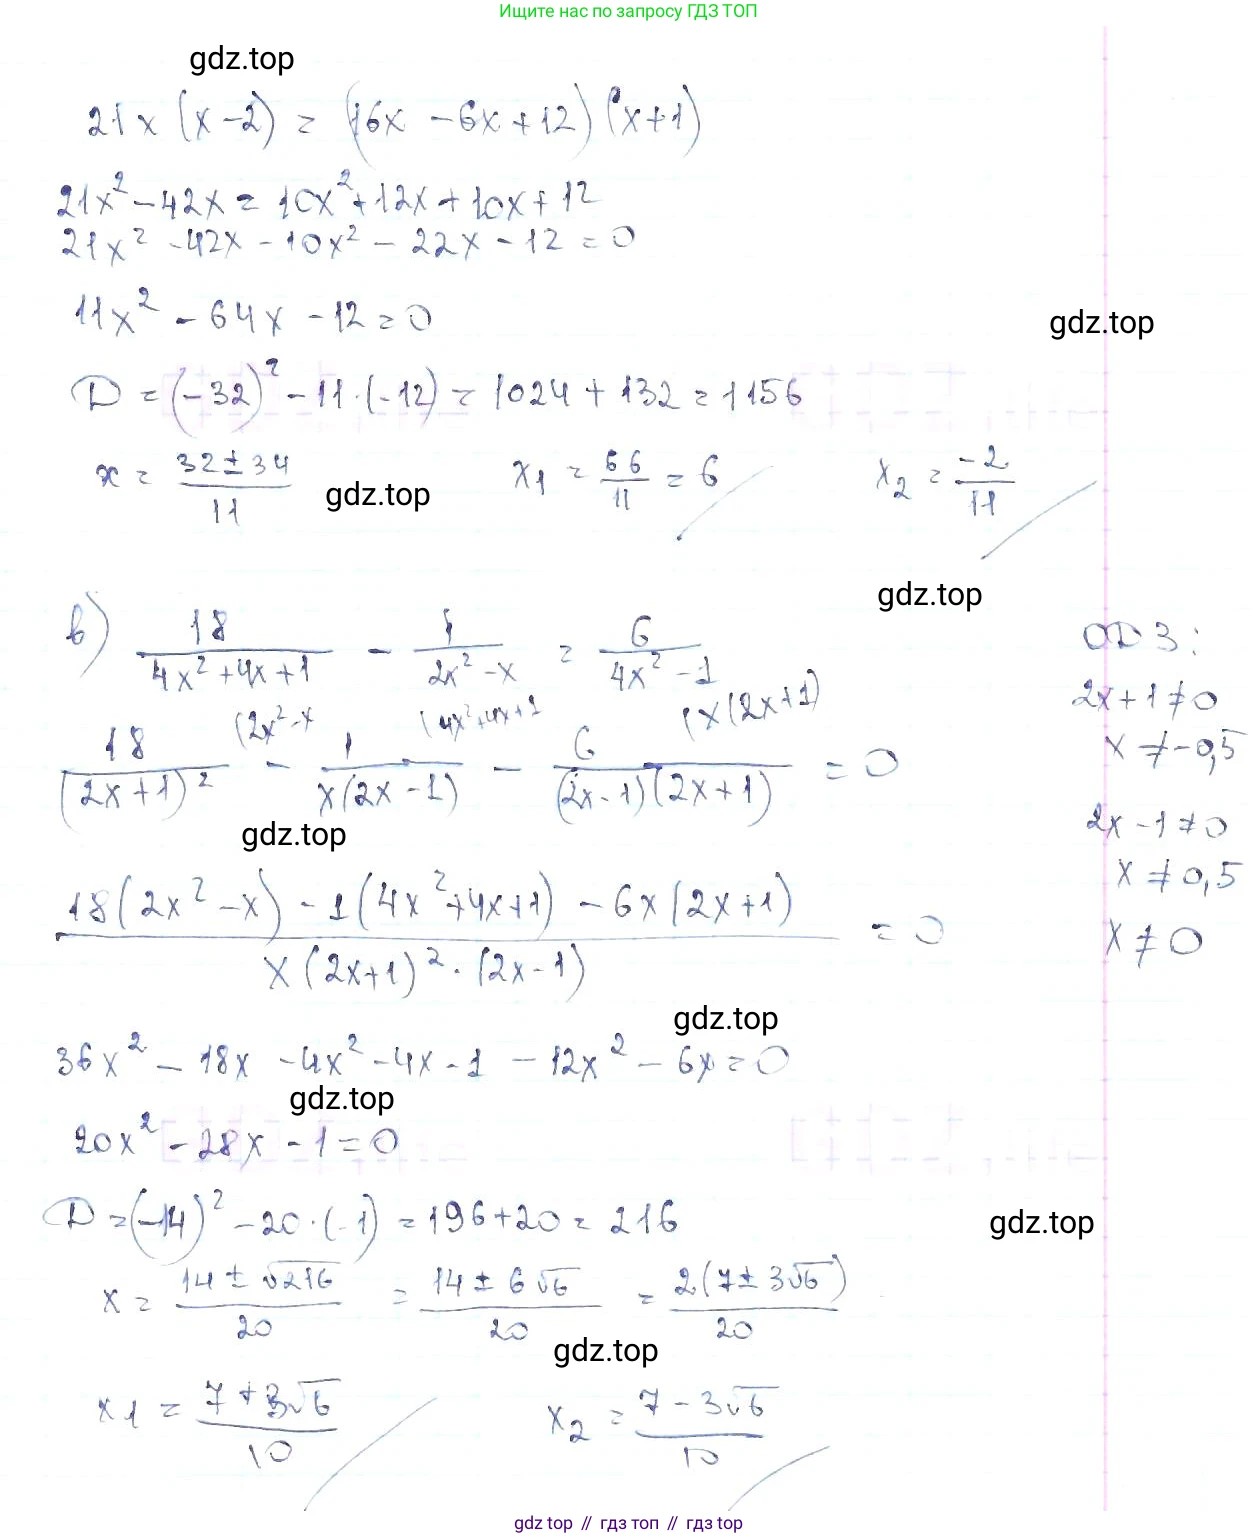 Ищите нас по запросу ГДЗ ТОП
gdz.top
21x (x-2) = (16x - 6x + 12) (x+1)
21x² - 42x = 10x² + 12x + 10x + 12
21x² - 42x - 10x² - 22x - 12 = 0
11x² - 64x - 12 = 0
gdz.top
D = (-32)² - 11·(-12) = 1024 + 132 = 1156
x = (32 ± 34)/11 x₁ = 66/11 = 6 x₂ = -2/11
gdz.top
gdz.top
в) 18/(4x²+4x+1) - 1/(2x²-x) = 6/(4x²-1)
ОДЗ:
2x+1≠0
x ≠ -0,5
2x-1≠0
x ≠ 0,5
x ≠ 0
18/(2x+1)² (2x²-x - 1/(x(2x-1)) (4x²+4x+1 - 6/((2x-1)(2x+1)) (x(2x+1) = 0
gdz.top
(18(2x²-x) - 1(4x²+4x+1) - 6x(2x+1))/(x(2x+1)²·(2x-1)) = 0
gdz.top
36x² - 18x - 4x² - 4x - 1 - 12x² - 6x = 0
gdz.top
20x² - 28x - 1 = 0
D = (-14)² - 20·(-1) = 196+20 = 216
gdz.top
x = (14 ± √216)/20 = (14 ± 6√6)/20 = 2(7 ± 3√6)/20
gdz.top
x₁ = (7 + 3√6)/10 x₂ = (7 - 3√6)/10
gdz top // гдз топ // gdz top